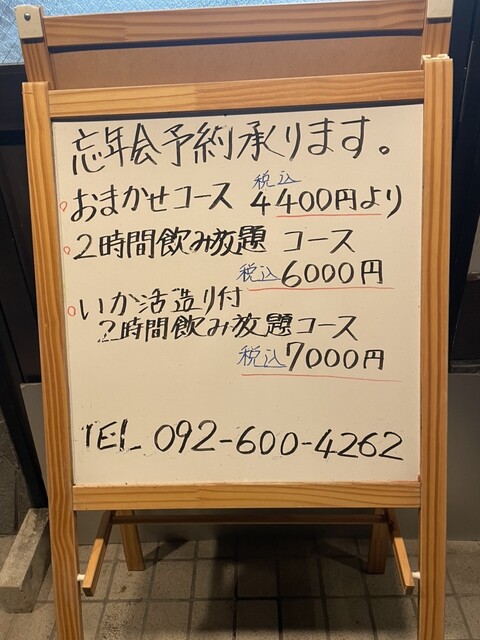 忘年会予約承ります。
おまかせコース 税込4400円より
2時間飲み放題 コース
税込6000円
いか活造り付
2時間飲み放題コース
税込7000円
TEL 092-600-4262